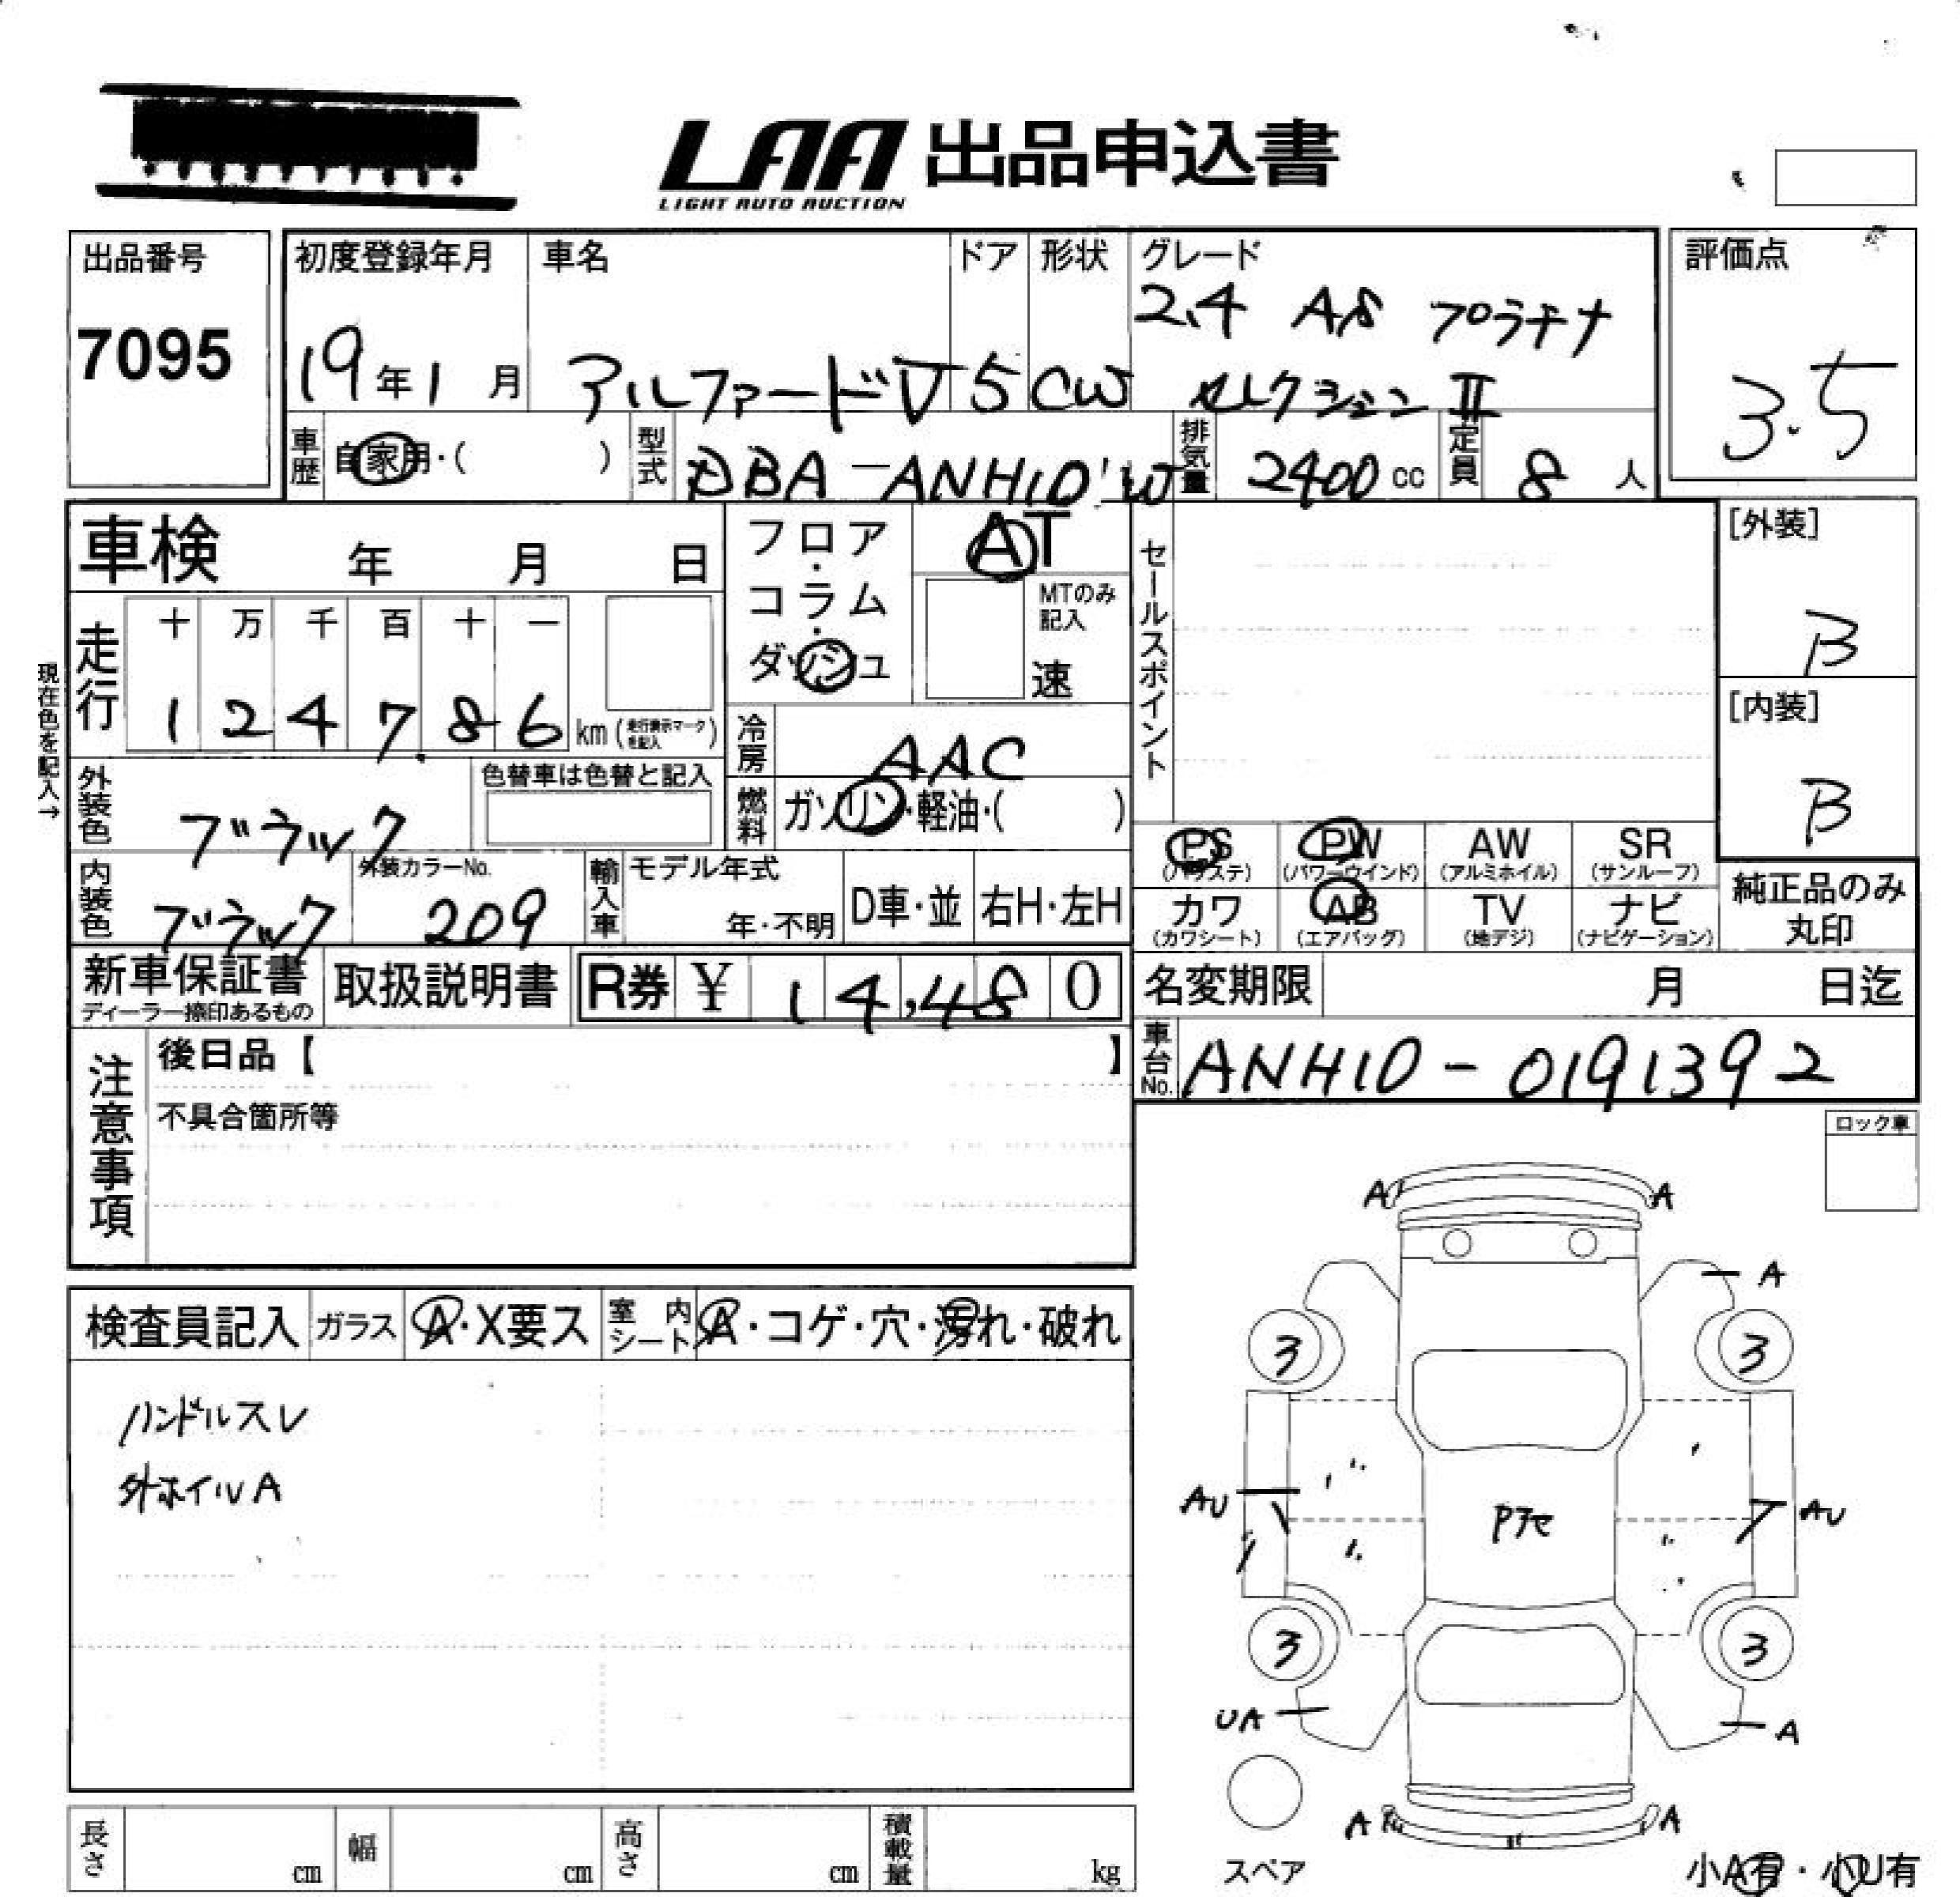 LAA 出品申込書
LIGHT AUTO AUCTION
出品番号
7095
初度登録年月
19年1月
車名
アルファードV
ドア
5
形状
CW
グレード
2.4 AS プラチナ
セレクションⅡ
評価点
3.5
車歴
自家用・( )
型式
DBA-ANH10W
排気量
2400cc
定員
8人
車検 年 月 日
フロア・コラム・ダッシュ
AT
MTのみ記入
速
セールスポイント
[外装]
B
[内装]
B
現在色を記入→
走行
十 万 千 百 十 一
1 2 4 7. 8 6 km (走行表示マークを記入)
冷房
AAC
外装色
ブラック
色替車は色替と記入
燃料
ガソリン・軽油・( )
PS (パワステ)
PW (パワーウインド)
AW (アルミホイル)
SR (サンルーフ)
カワ (カワシート)
AB (エアバッグ)
TV (地デジ)
ナビ (ナビゲーション)
純正品のみ
丸印
内装色
ブラック
外装カラーNo.
209
輸入車
モデル年式
年・不明
D車・並
右H・左H
新車保証書
ディーラー捺印あるもの
取扱説明書
R券 ¥ 14,480
名変期限 月 日迄
車台No.
ANH10-0191392
注意事項
後日品【 】
不具合箇所等
ロック車
検査員記入
ガラス
A・X要ス
室内シート
A・コゲ・穴・汚れ・破れ
ハンドルスレ
外ホイルA
A A
A
3 3
AU AU
Pアセ
3 3
UA A
A A
スペア
小A有・小U有
長さ cm
幅 cm
高さ cm
積載量 kg